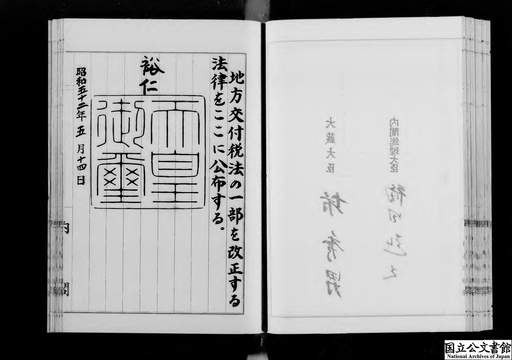 地方交付税法の一部を改正する
法律をここに公布する。
裕仁
天皇
御璽
昭和五十二年五月十四日
内閣
内閣総理大臣
大蔵大臣
国立公文書館
National Archives of Japan